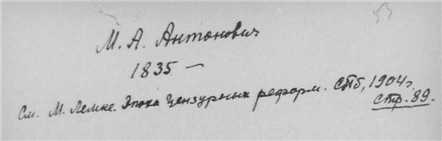 М. А. Антонович
1835 —
См. М. Лемке. Эпоха цензурных реформ. СПб, 1904 г.
Стр. 89.